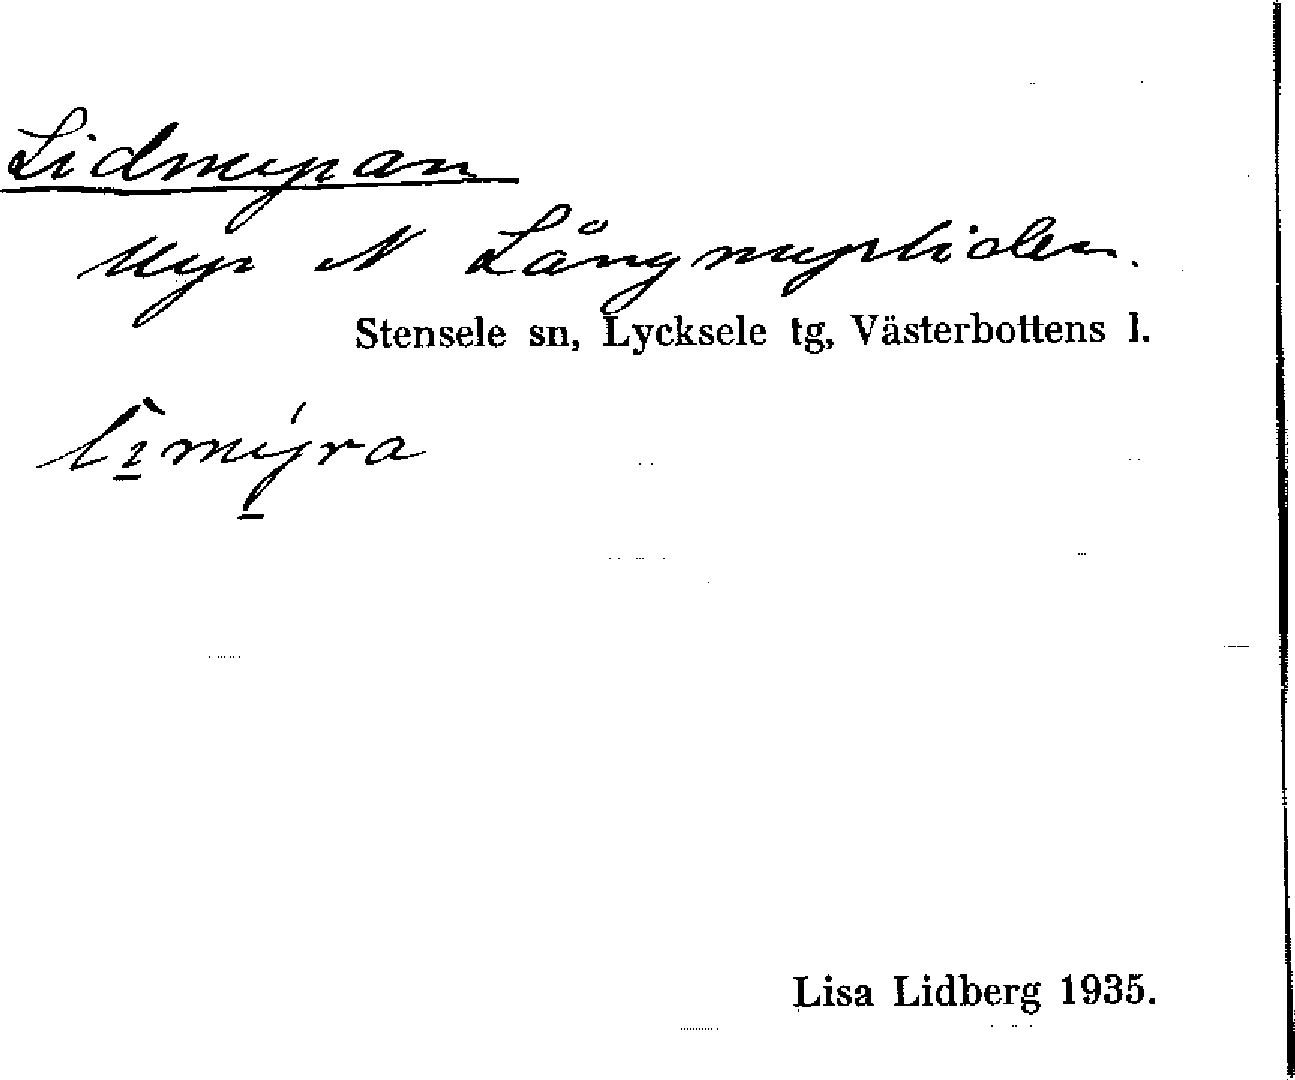 Lidmyran
Myr N Långmyrliden.
Stensele sn, Lycksele tg, Västerbottens l.
lı̀mýra
Lisa Lidberg 1935.